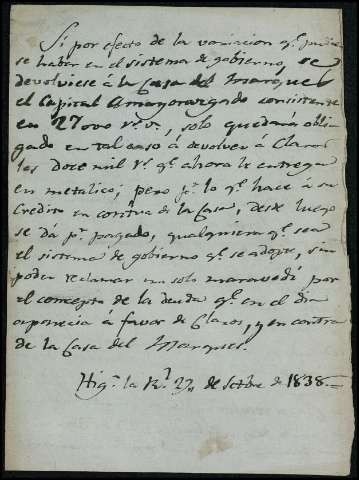 Si por efecto de la variacion q.e pudiese
se haber en el sistema de gobierno, se
devolviese á la Casa del Marques
el Capital Amayorazgado consistente
en 27000 r.s v.n, solo quedará obli
gado en tal caso á devolver á Claros
los doce mil r.s q.e ahora le entrega
en metalico; pero p.r lo q.e hace á su
Credito en contra de la Casa, desde luego
se dá p.r pagado, qualquiera q.e sea
el sistema de gobierno q.e se adopte, sin
poder reclamar un solo maravedí por
el concepto de la deuda q.e en el dia
aparecia á favor de Claros, y en contra
de la Casa del Marques.
Hig.a la R.l 27 de Setbre de 1838.